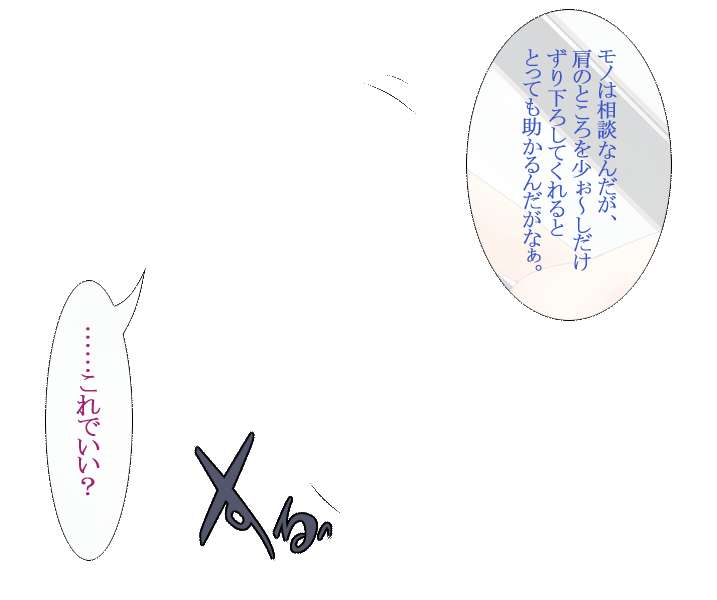 モノは相談なんだが、
肩のところを少ぉ～しだけ
ずり下ろしてくれると
とっても助かるんだがなぁ。
……これでいい？